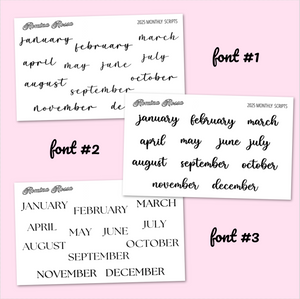 Romina Rossa
2025 MONTHLY SCRIPTS
january february march
april may june july
august october
september
november december
font #1
font #2
Romina Rossa
2025 MONTHLY SCRIPTS
january february march
april may june july
august september october
november december
Romina Rossa
JANUARY FEBRUARY MARCH
APRIL MAY JUNE JULY
AUGUST OCTOBER
SEPTEMBER
NOVEMBER DECEMBER
font #3